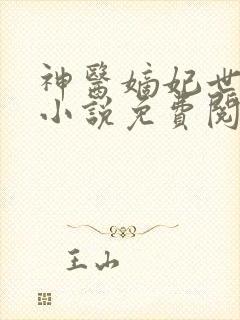 神醫嫡妃世
小說免費閱
王山